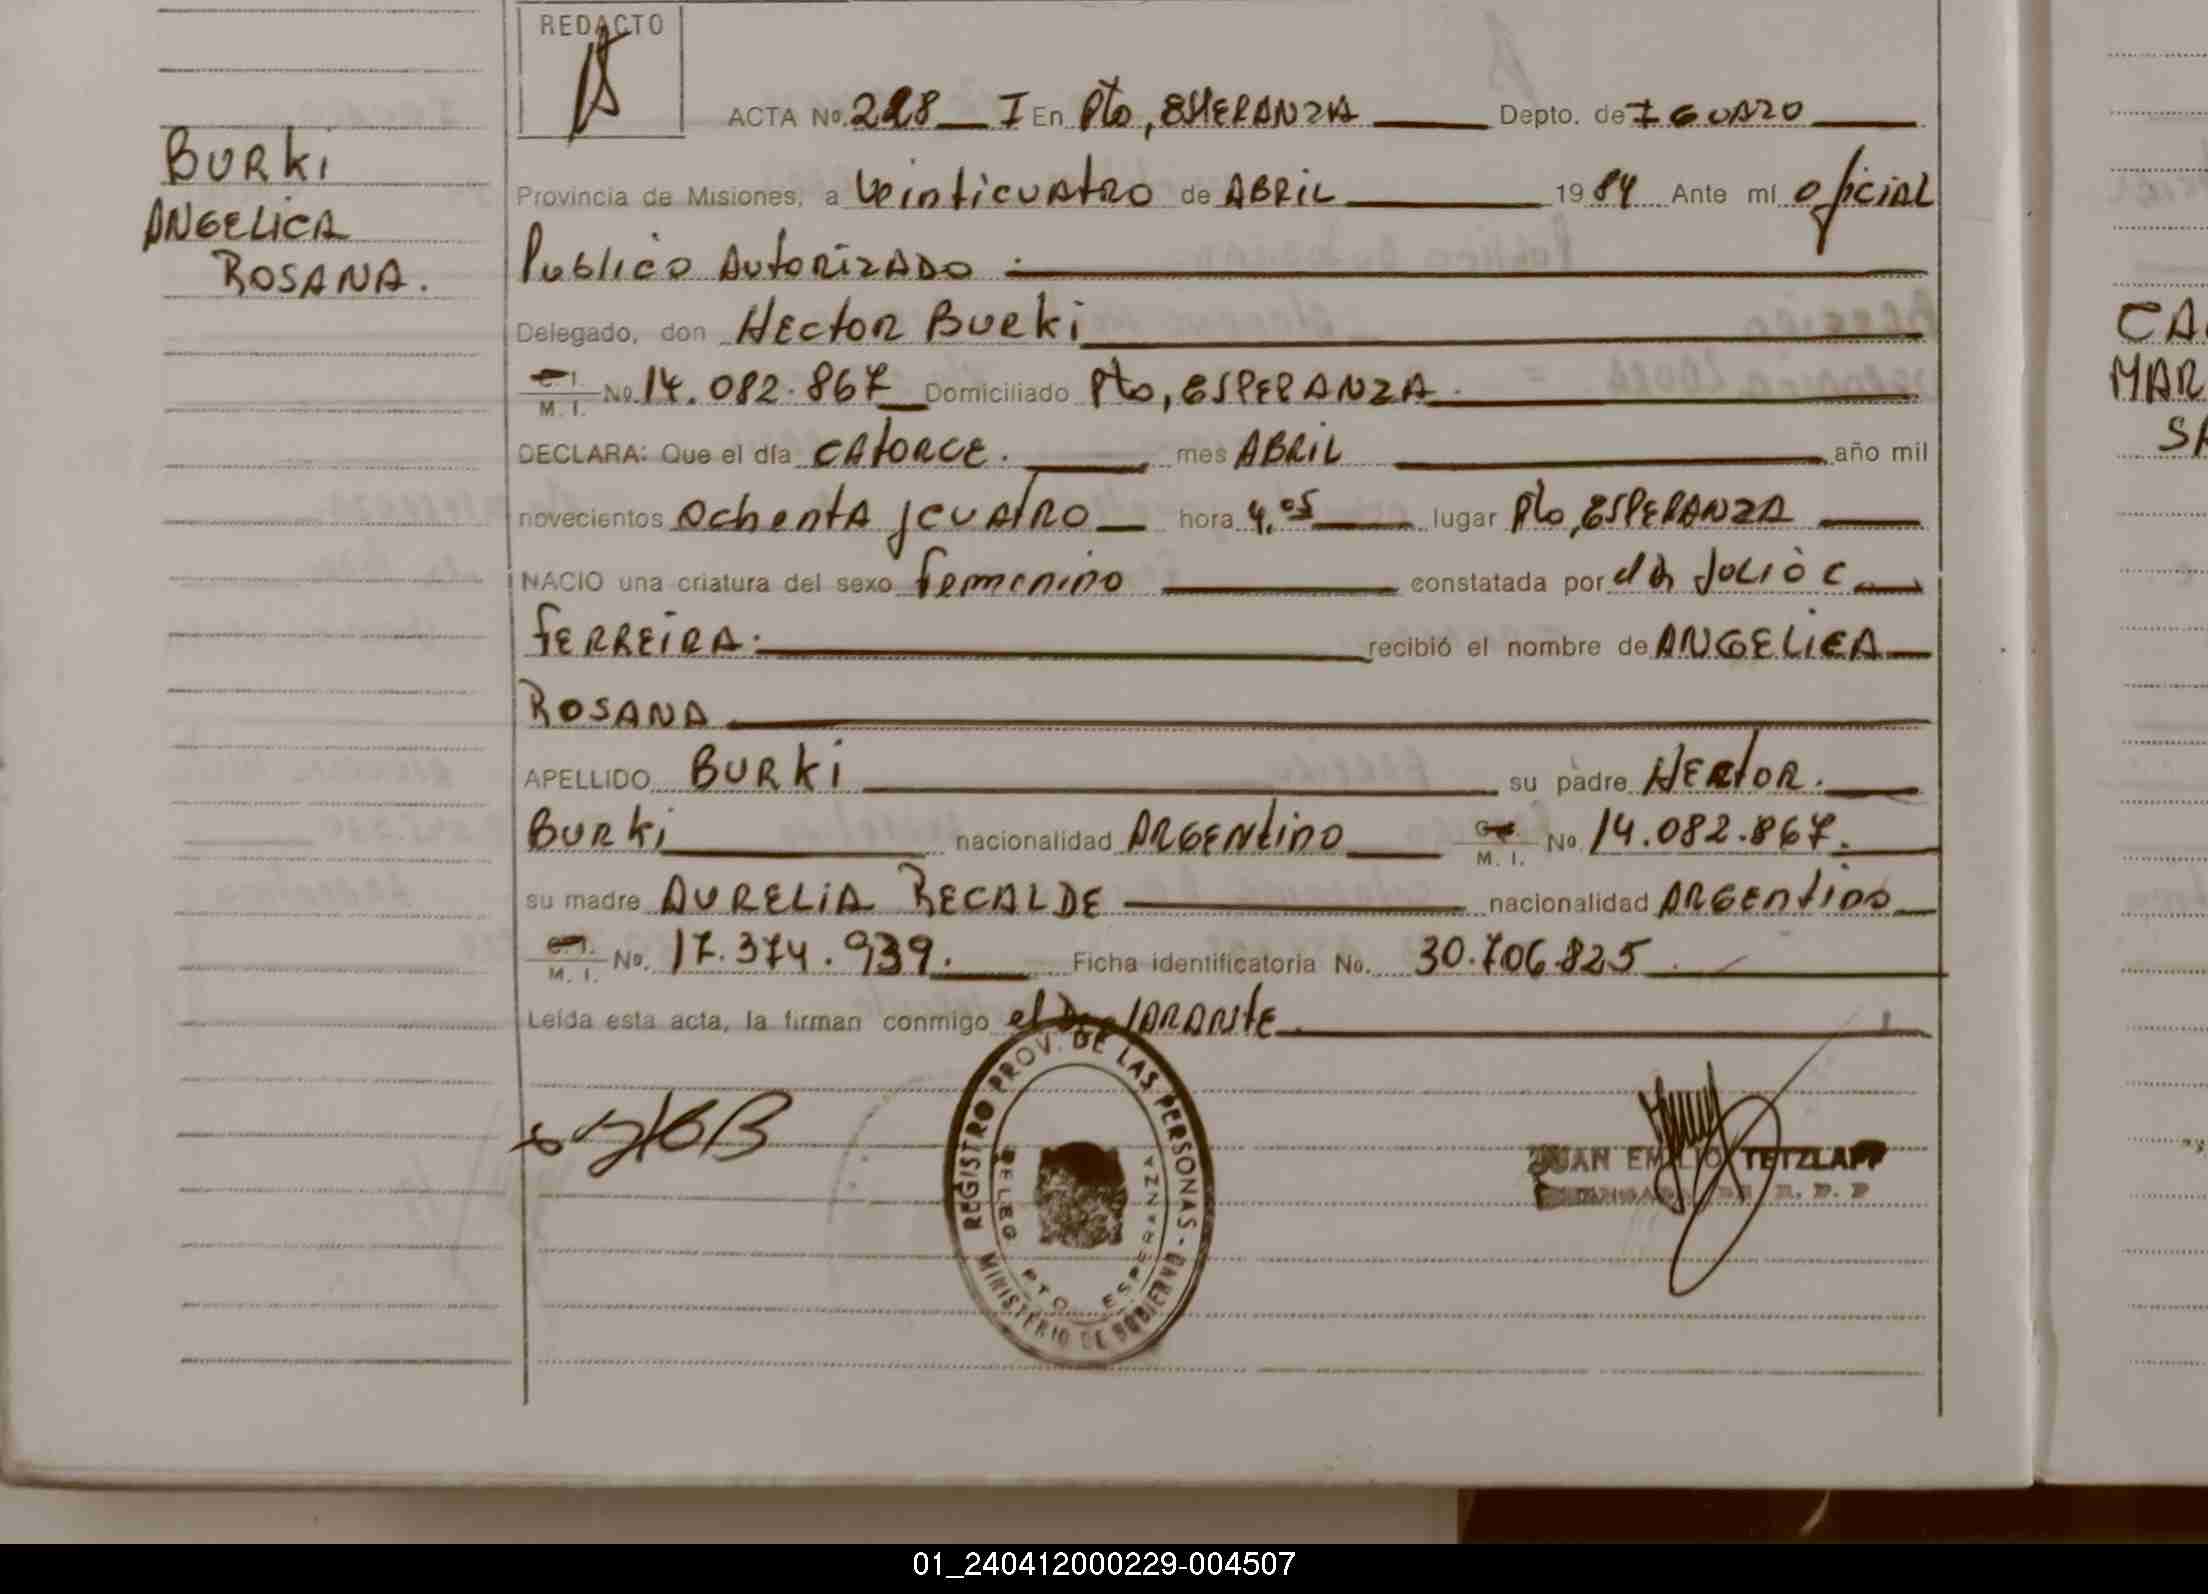 REDACTO
ACTA No. 228 I En Pto, ESPERANZA Depto. de IGUAZU
BURKI
Provincia de Misiones, a Veinticuatro de ABRIL 1984 Ante mí oficial
ANGELICA
Publico Autorizado
ROSANA.
Delegado, don Hector Burki
C. I.
M. I. No. 14.082.867 Domiciliado Pto, ESPERANZA.
DECLARA: Que el día CATORCE. mes ABRIL año mil
novecientos ochenta y cuatro hora 4,05 lugar Pto, ESPERANZA
NACIO una criatura del sexo femenino constatada por el Dr Julio C
FERREIRA. recibió el nombre de ANGELICA
ROSANA
APELLIDO BURKI su padre HECTOR.
BURKI nacionalidad ARGENTINO C. I. M. I. No. 14.082.867.
su madre AURELIA RECALDE nacionalidad ARGENTINO
C. I.
M. I. No. 17.374.939. Ficha identificatoria No. 30.706.825
Leída esta acta, la firman conmigo el Declarante
REGISTRO PROV. DE LAS PERSONAS - MINISTERIO DE GOBIERNO
DELEG PTO ESPERANZA
JUAN EMILIO TETZLAFF
CA
MAR
SA
01_240412000229-004507